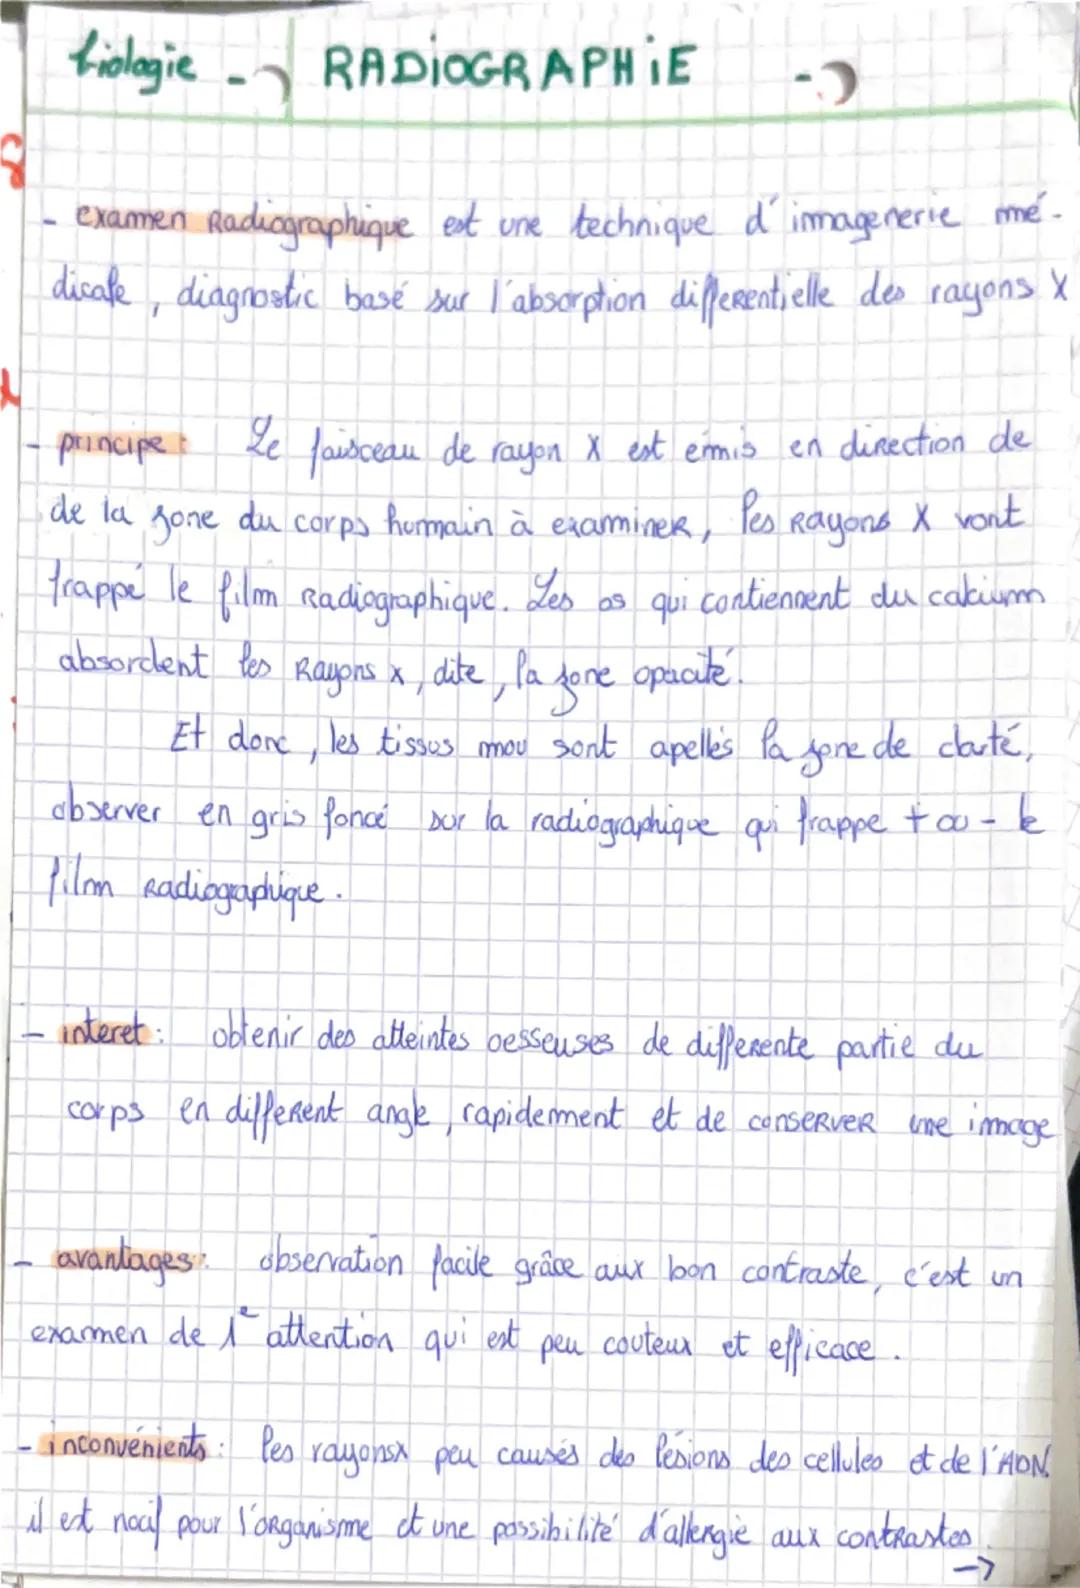 biologie -> RADiOGRAPHiE ->
- examen Radiographique est une technique d'immagenerie mé-
dicale, diagnostic basé sur l'absorption differentielle des rayons X
- principe : Le faisceau de rayon X est émis en direction de
de la zone du corps humain à examiner, les Rayons X vont
frappé le film Radiographique. Les os qui contiennent du calcium
absordent les Rayons x, dite, la zone opacité.
Et donc, les tissus mou sont apellés la zone de clarté,
observer en gris foncé sur la radiographique qui frappe + ou - le
film Radiographique.
- interet : obtenir des atteintes oesseuses de differente partie du
corps en different angle, rapidemment et de conserver une immage
- avantages : observation facile grâce aux bon contraste, c'est un
examen de 1e attention qui est peu couteux et efficace.
- inconvénients : les rayonsx peu causés des lésions des cellules et de l'ADN.
il est nocif pour l'organisme et une possibilité d'allergie aux contrastes.
->